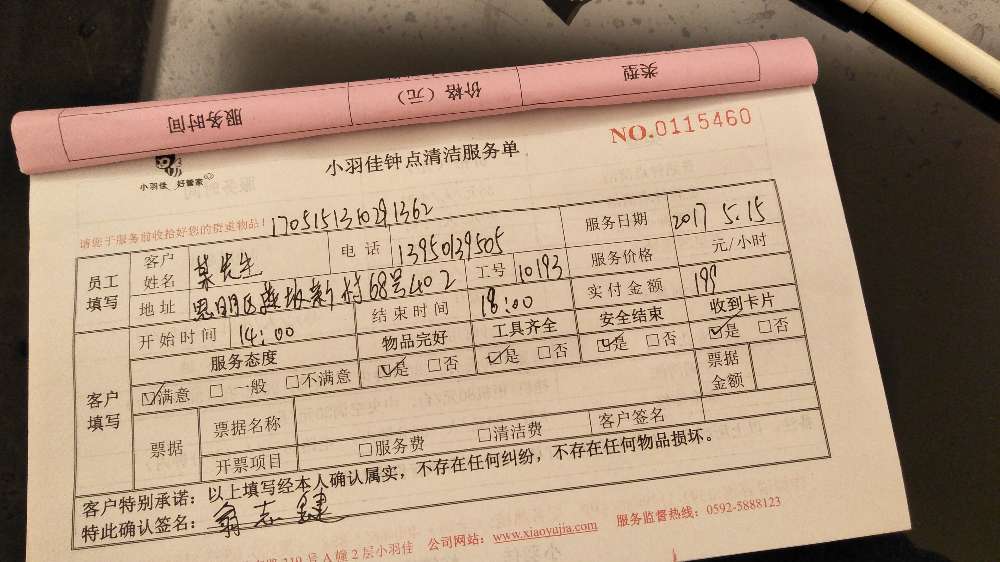 服务时间 价格（元） 类型
NO.0115460
小羽佳 好管家
小羽佳钟点清洁服务单
请您于服务前收拾好您的贵重物品！
员工填写 客户姓名 先生 电话 13950139505 服务日期 2017 5.15
地址 思明区 新村68号402 工号 10193 服务价格 元/小时
开始时间 14:00 结束时间 18:00 实付金额 199
客户填写 服务态度 物品完好 工具齐全 安全结束 收到卡片
☑满意 □一般 □不满意 ☑是 □否 ☑是 □否 ☑是 □否 ☑是 □否
票据 票据名称 票据金额
开票项目 □服务费 □清洁费 客户签名
客户特别承诺：以上填写经本人确认属实，不存在任何纠纷，不存在任何物品损坏。
特此确认签名： 翁志
219号A幢2层小羽佳 公司网站：www.xiaoyujia.com 服务监督热线：0592-5888123